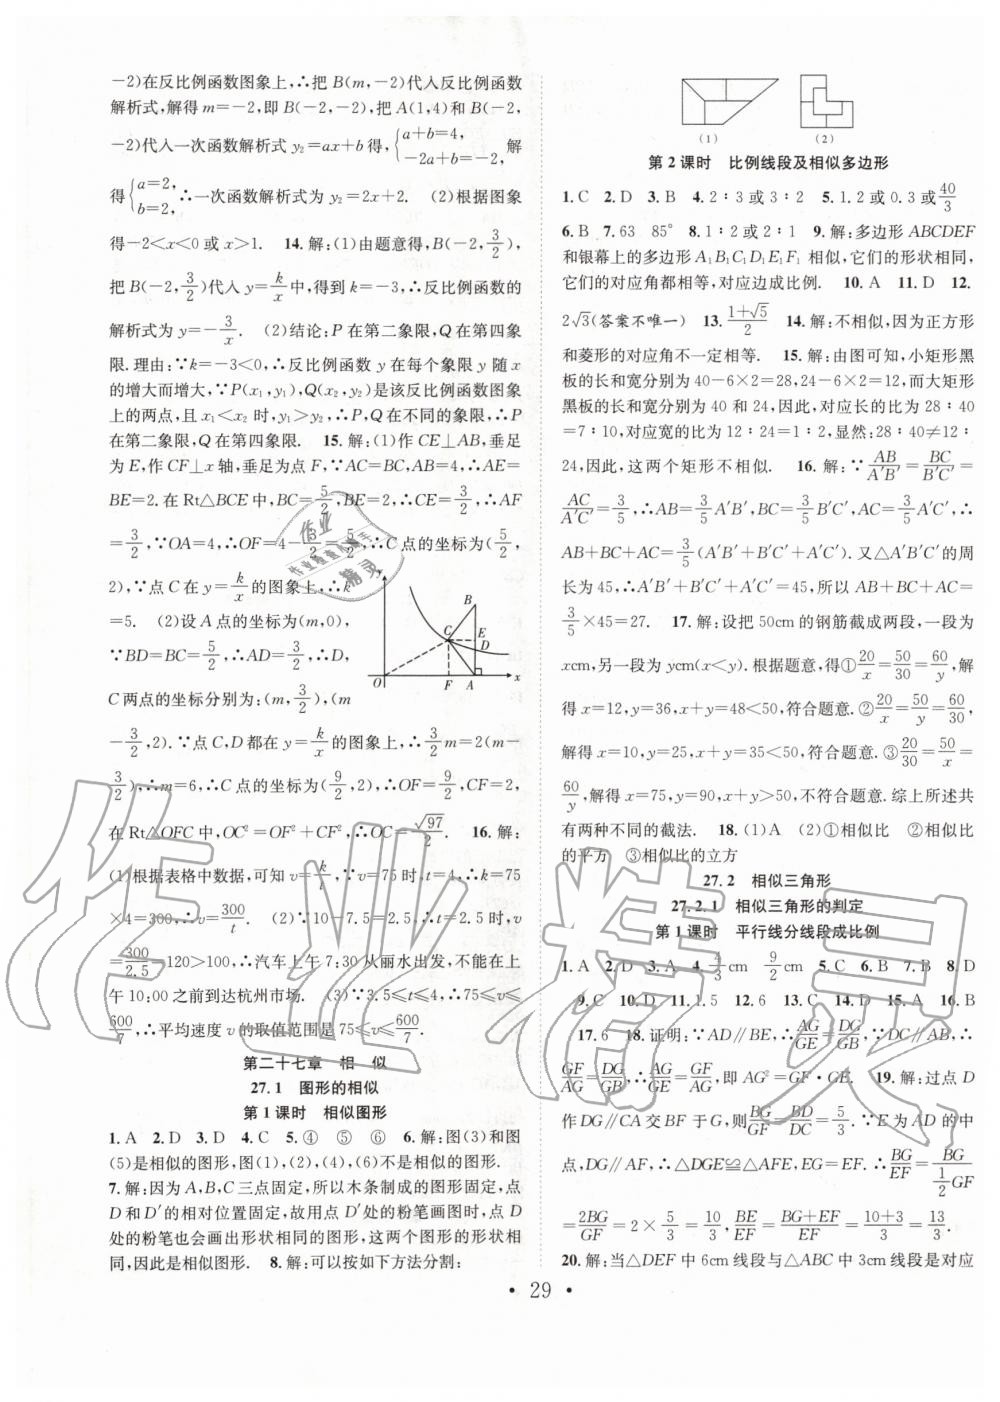 -2)在反比例函数图象上,∴把 B(m,-2)代入反比例函数
解析式,解得 m=-2,即 B(-2,-2),把 A(1,4)和 B(-2,
-2)代入一次函数解析式 y₂=ax+b 得,{a+b=4, -2a+b=-2. 解
得{a=2, b=2. ∴一次函数解析式为 y₂=2x+2. (2)根据图象
得-2<x<0 或 x>1. 14.解:(1)由题意得,B(-2,3/2),
把 B(-2,3/2)代入 y=k/x 中,得到 k=-3,∴反比例函数的
解析式为 y=-3/x. (2)结论:P 在第二象限,Q 在第四象
限.理由:∵k=-3<0,∴反比例函数 y 在每个象限 y 随 x
的增大而增大,∵P(x₁,y₁),Q(x₂,y₂)是该反比例函数图象
上的两点,且 x₁<x₂ 时,y₁>y₂,∴P,Q 在不同的象限,∴P
在第二象限,Q 在第四象限. 15.解:(1)作 CE⊥AB,垂足
为 E,作 CF⊥x 轴,垂足为点 F,∵AC=BC,AB=4,∴AE=
BE=2.在 Rt△BCE 中,BC=5/2,BE=2,∴CE=3/2,∴AF
=3/2,∵OA=4,∴OF=4-3/2=5/2,∴C 点的坐标为(5/2,
2),∵点 C 在 y=k/x 的图象上,∴k
=5. (2)设 A 点的坐标为(m,0),
∵BD=BC=5/2,∴AD=3/2,∴D,
C 两点的坐标分别为:(m,3/2),(m
-3/2,2). ∵点 C,D 都在 y=k/x 的图象上,∴3/2m=2(m-
3/2),∴m=6,∴C 点的坐标为(9/2,2),∴OF=9/2,CF=2,
在 Rt△OFC 中,OC²=OF²+CF²,∴OC=√97/2. 16.解:
(1)根据表格中数据,可知 v=k/t,∵v=75 时,t=4,∴k=75
×4=300,∴v=300/t. (2)∵10-7.5=2.5,∴t=2.5 时,v=
300/2.5=120>100,∴汽车上午 7:30 从丽水出发,不能在上
午 10:00 之前到达杭州市场. (3)∵3.5≤t≤4,∴75≤v≤
600/7,∴平均速度 v 的取值范围是 75≤v≤600/7.
第二十七章 相 似
27.1 图形的相似
第 1 课时 相似图形
1.A 2.D 3.D 4.C 5.④ ⑤ ⑥ 6.解:图(3)和图
(5)是相似的图形,图(1),(2),(4),(6)不是相似的图形.
7.解:因为 A,B,C 三点固定,所以木条制成的图形固定,点
D 和 D′的相对位置固定,故用点 D′处的粉笔画图时,点 D
处的粉笔也会画出形状相同的图形,这两个图形的形状相
同,因此是相似图形. 8.解:可以按如下方法分割:
B
C
E
D
O
F
A
x
y
(1) (2)
第 2 课时 比例线段及相似多边形
1.C 2.D 3.B 4.2∶3 或 3∶2 5.1.2 或 0.3 或 40/3
6.B 7.63 85° 8.1∶2 或 2∶1 9.解:多边形 ABCDEF
和银幕上的多边形 A₁B₁C₁D₁E₁F₁ 相似,它们的形状相同,
它们的对应角都相等,对应边成比例. 10.A 11.D 12.
2√3(答案不唯一) 13.(1+√5)/2 14.解:不相似,因为正方形
和菱形的对应角不一定相等. 15.解:由图可知,小矩形黑
板的长和宽分别为 40-6×2=28,24-6×2=12,而大矩形
黑板的长和宽分别为 40 和 24,因此,对应长的比为 28∶40
=7∶10,对应宽的比为 12∶24=1∶2,显然:28∶40≠12∶
24,因此,这两个矩形不相似. 16.解:∵AB/A′B′=BC/B′C′=
AC/A′C′=3/5,∴AB=3/5A′B′,BC=3/5B′C′,AC=3/5A′C′,∴
AB+BC+AC=3/5(A′B′+B′C′+A′C′). 又△A′B′C′的周
长为 45,∴A′B′+B′C′+A′C′=45,所以 AB+BC+AC=
3/5×45=27. 17.解:设把 50cm 的钢筋截成两段,一段为
xcm,另一段为 ycm(x<y).根据题意,得①20/x=50/30=60/y,解
得 x=12,y=36,x+y=48<50,符合题意. ②20/x=50/y=60/30,
解得 x=10,y=25,x+y=35<50,符合题意. ③20/30=50/x=
60/y,解得 x=75,y=90,x+y>50,不符合题意.综上所述共
有两种不同的截法. 18.(1)A (2)①相似比 ②相似比
的平方 ③相似比的立方
27.2 相似三角形
27.2.1 相似三角形的判定
第 1 课时 平行线分线段成比例
1.A 2.D 3.A 4.4/3cm 9/2cm 5.C 6.B 7.B 8.D
9.C 10.D 11.1.5 12.6 13.C 14.D 15.A 16.B
17.6 18.证明:∵AD∥BE,∴AG/GE=DG/GB,∵DC∥AB,∴
GF/AG=DG/GB,∴AG/GE=GF/AG,即 AG²=GE·GF. 19.解:过点 D
作 DG∥CA 交 BF 于 G,则BG/GF=BD/DC=5/3. ∵E 为 AD 的中
点,DG∥AF,∴△DGE≌△AFE,EG=EF. ∴BG/EF=BG/(1/2GF)
=2BG/GF=2×5/3=10/3,BE/EF=(BG+EF)/EF=(10+3)/3=13/3.
20.解:当△DEF 中 6cm 线段与△ABC 中 3cm 线段是对应
·29·
作业精灵